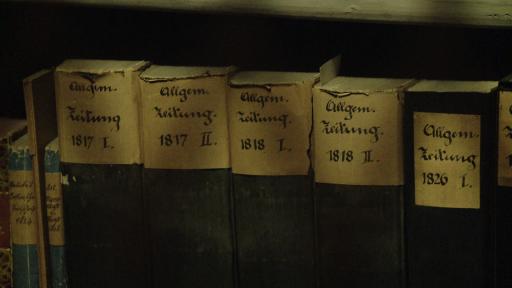 Allgem.
Zeitung
1817 I.
Allgem.
Zeitung.
1817 II.
Allgem.
Zeitung.
1818 I.
Allgem.
Zeitung.
1818 II.
Allgem.
Zeitung
1826 I.